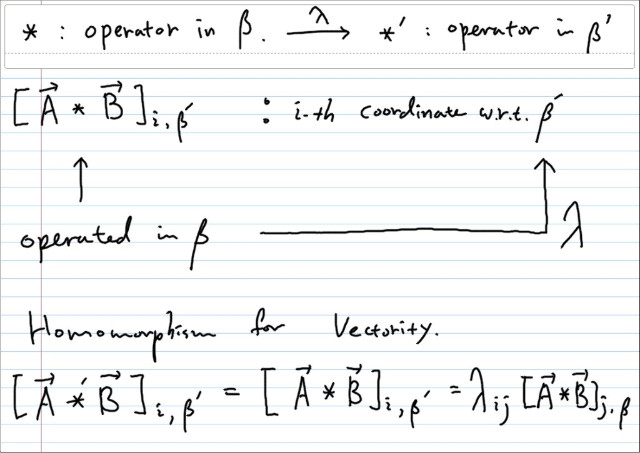 * : operator in β. →λ *' : operator in β'
[A⃗ * B⃗]i,β' : i-th coordinate w.r.t. β'
↑ ↑
operated in β λ
Homomorphism for Vectority.
[A⃗ *' B⃗]i,β' = [A⃗ * B⃗]i,β' = λij [A⃗ * B⃗]j,β